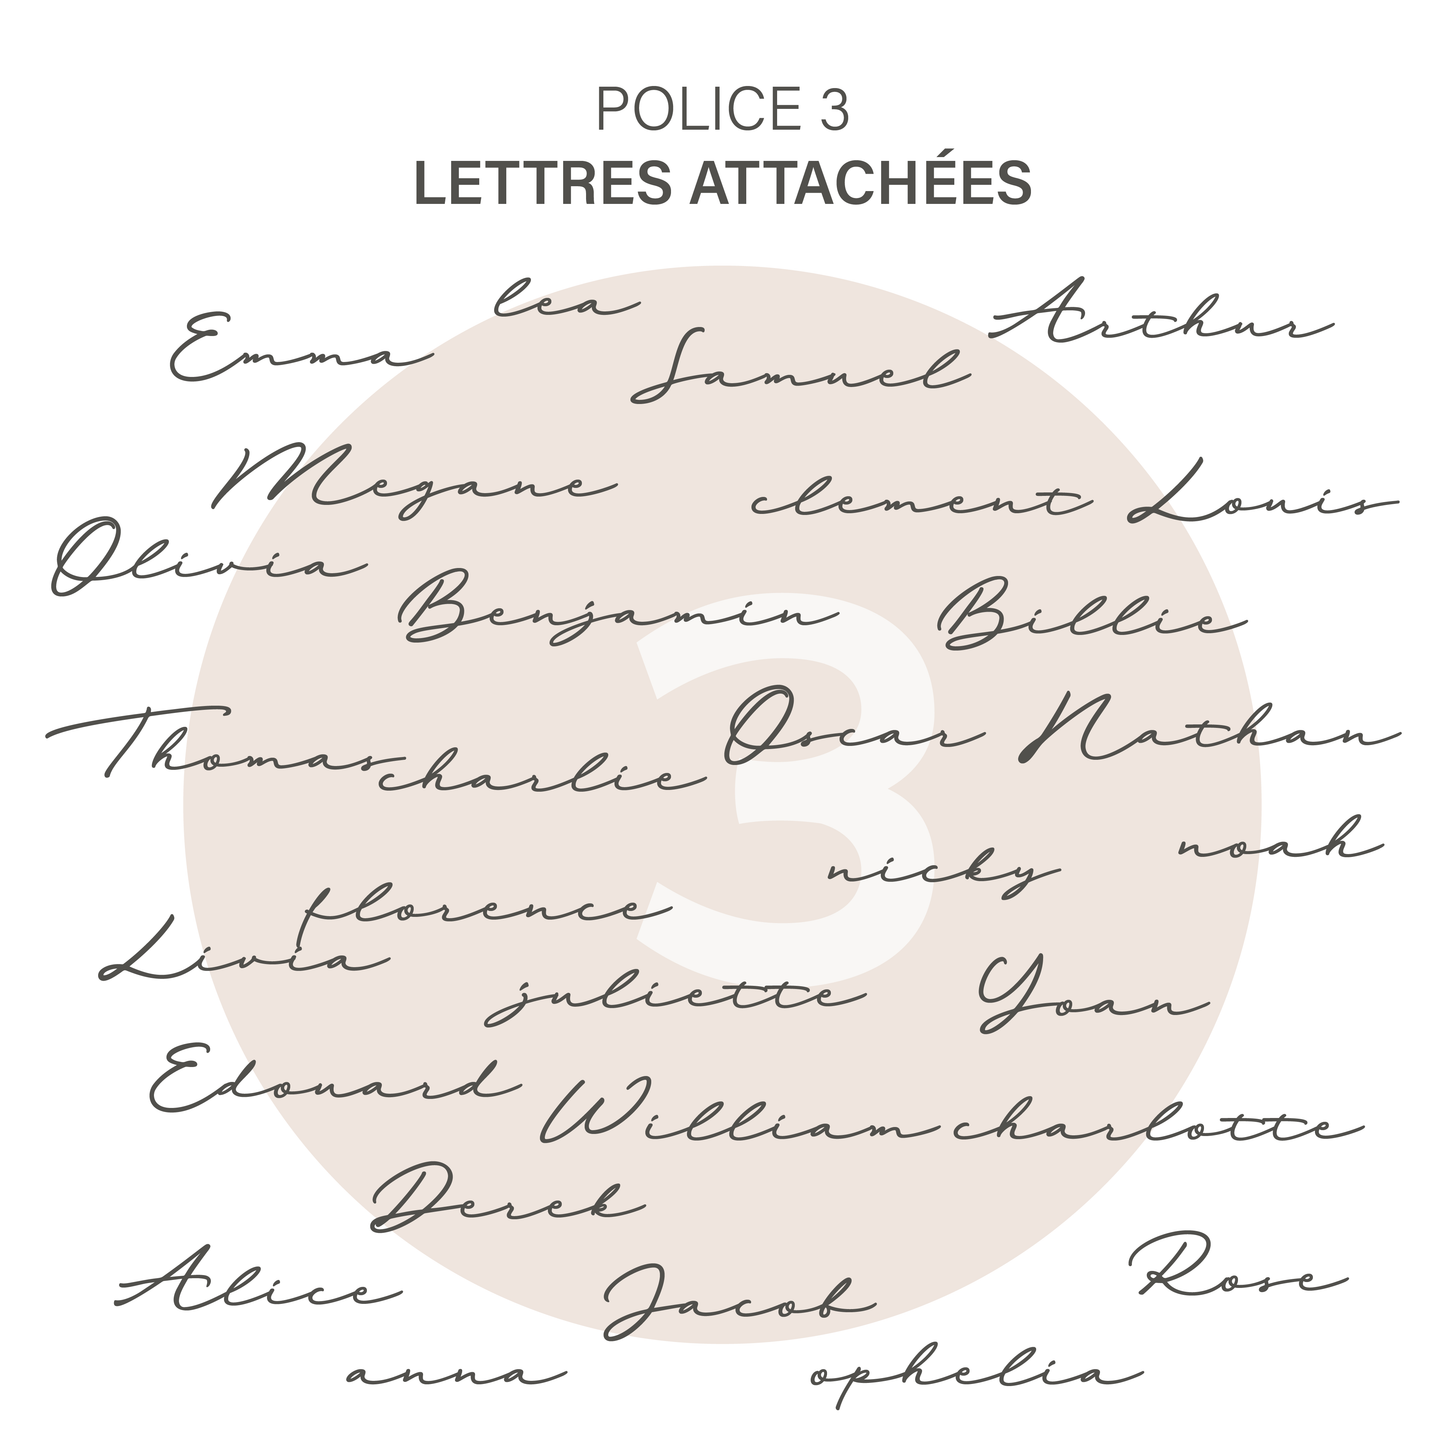 POLICE 3
LETTRES ATTACHÉES
lea
Emma
Arthur
Samuel
Megane
clement
Louis
Olivia
Benjamin
Billie
Thomas
charlie
Oscar
Nathan
3
nicky
noah
florence
Livia
juliette
Yoan
Edouard
William
charlotte
Derek
Alice
Jacob
Rose
anna
ophelia